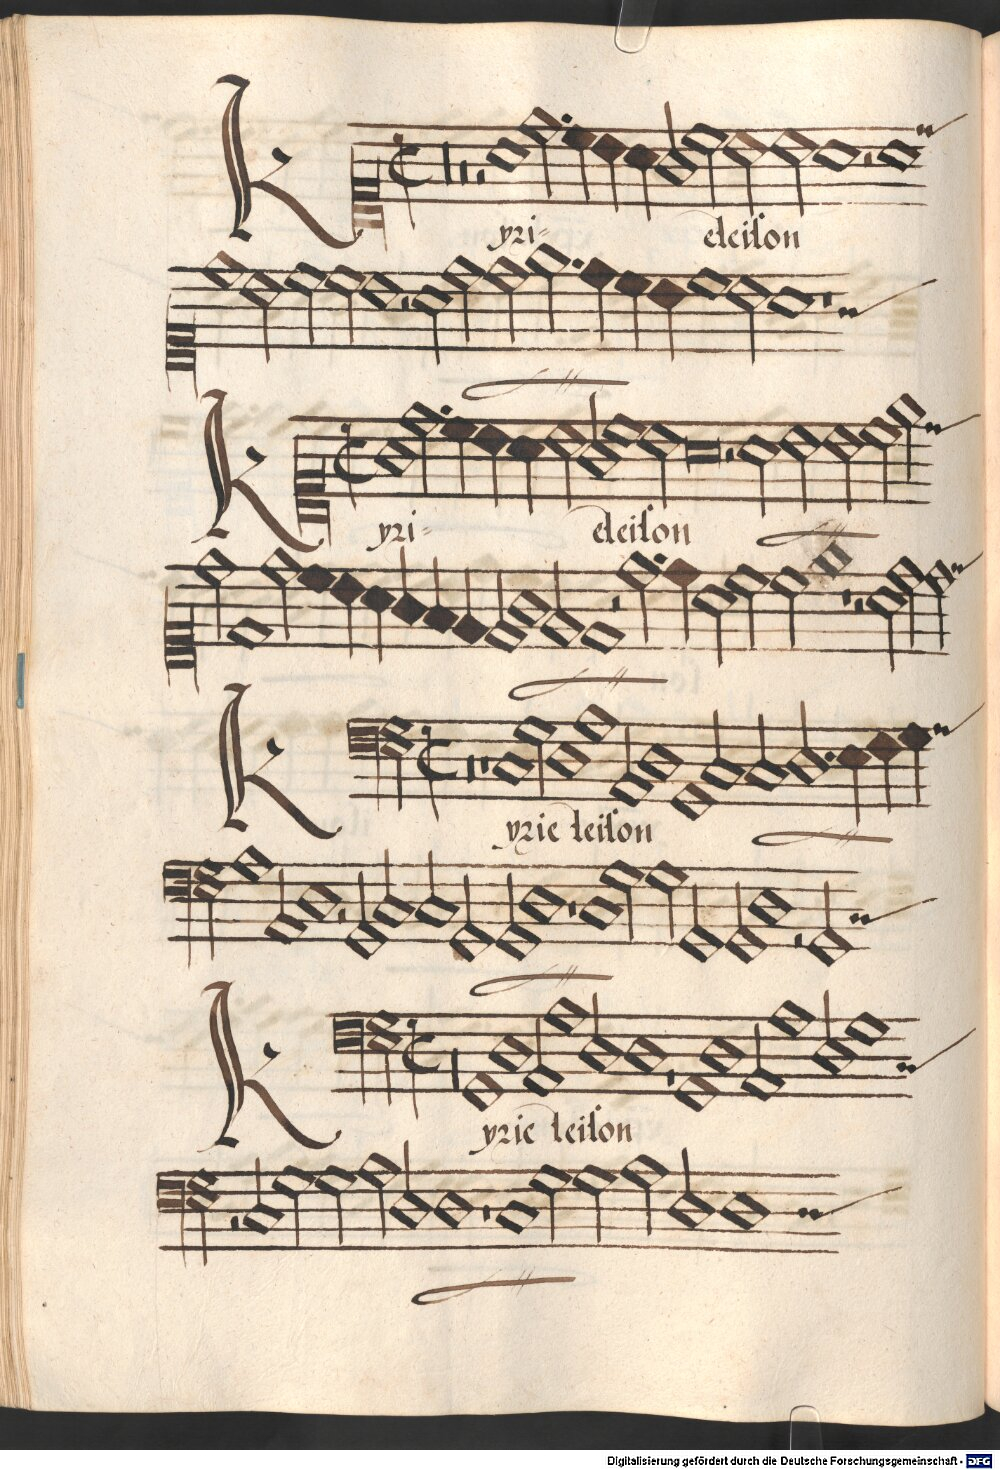 Kyri- eleiſon
Kyri- eleiſon
Kyrie leiſon
Kyrie leiſon
Digitalisierung gefördert durch die Deutsche Forschungsgemeinschaft - DFG